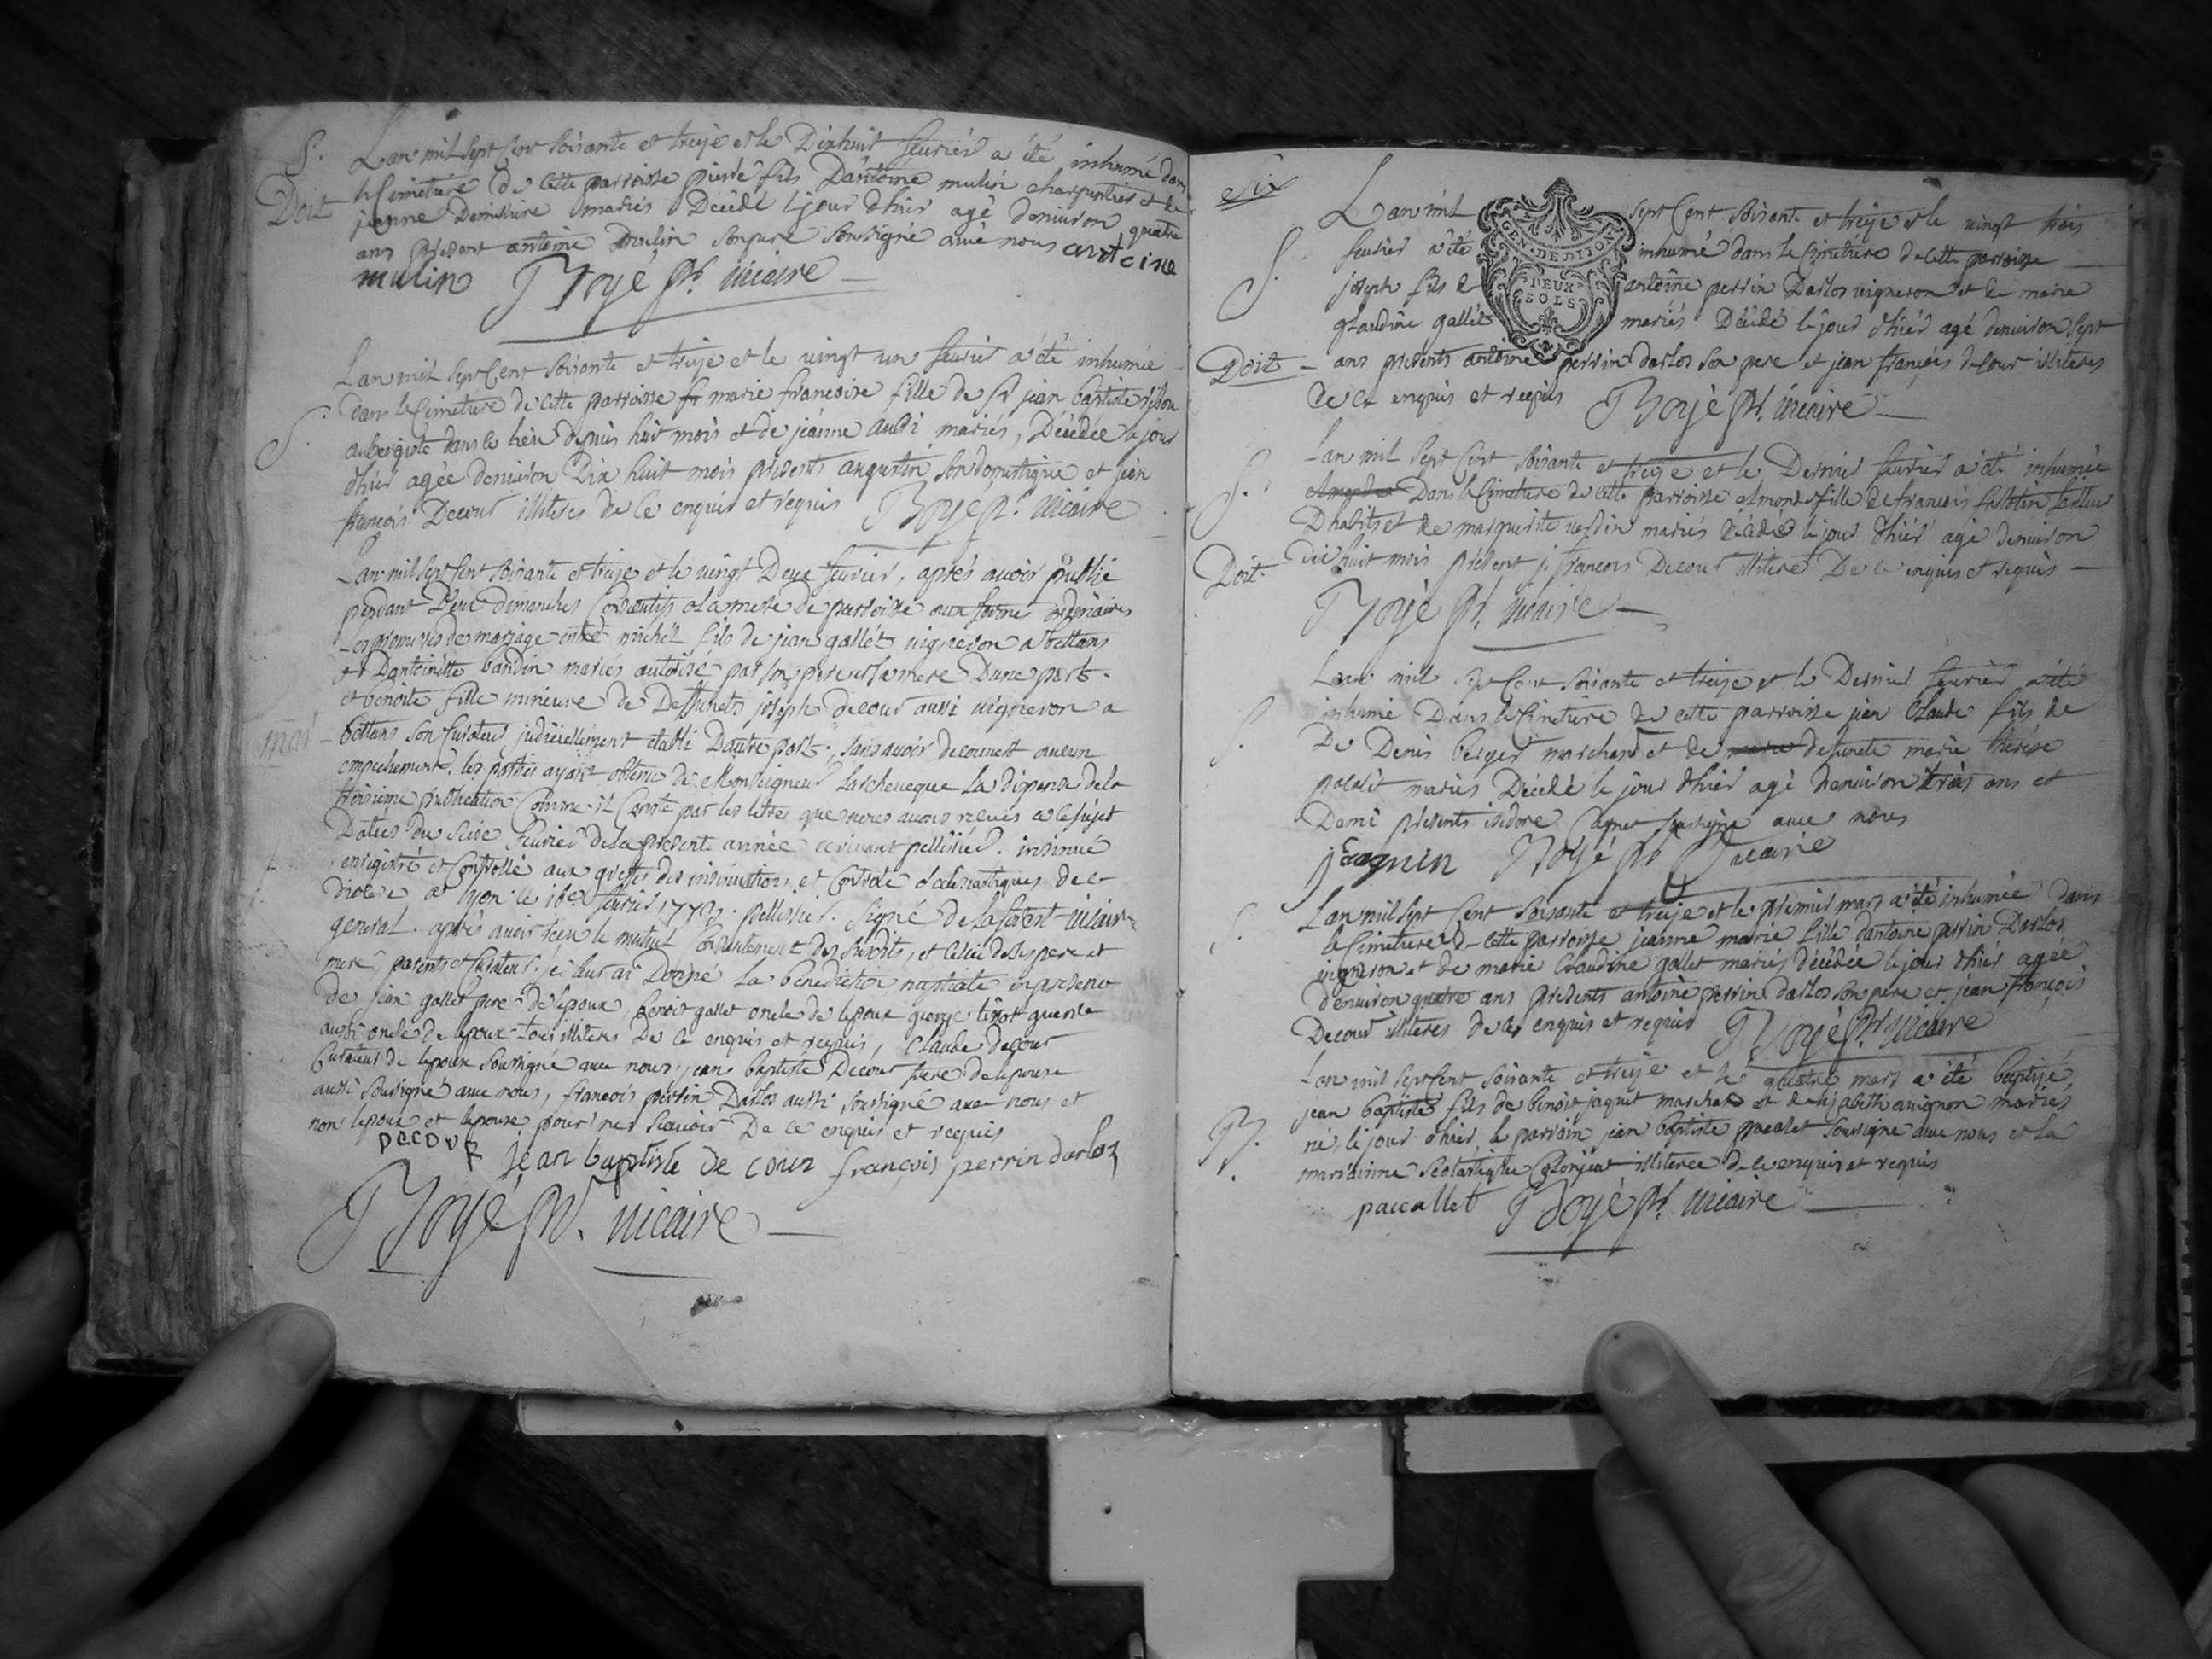 S. Lan mil sept Cent Soixante et treize et le Dixhuit feurier a été inhumé dans
Doit le Cimetiere de Cette parroisse pierre fils Dantoine mulin charpentier et de
jeanne mariés Décédé le jour d'hier agé denuiron quatre
ans présent antoine mulin son pere Soussigné auec nous antoine
mulin Royé ptr. uicaire
Lan mil Sept Cent Soixante et treize et le uingt un feurier a été inhumée
S. dans le Cimetiere de Cette parroisse marie francoise fille de Sr jean baptiste
aubergiste dans le lieu depuis huit mois et de jéanne mariés, Décédée le jour
d'hier agée denuiron Dix huit mois présents augustin son domestique et jean
françois Decour illiteres de Ce enquis et requis Royé ptr. uicaire
Lan mil sept Cent Soixante et treize et le uingt Deux feurier, aprés auoir publié
pendant Deux dimanches Consécutifs a la messe de parroisse aux formes ordinaires
Les promesses de mariage entre michel fils de jean gallét uigneron a bettans
et Dantoinette bardin mariés autorisé par son pere et sa mere Dune part.
et benoite fille mineure de Deffunts joséph decour aussi uigneron a
mar bettans son Curateur judiciellement etabli Dautre part. sans auoir decouuert aucun
empechement. les parties ayant obtenu de Monseigneur Larcheueque La dispense de la
troisieme publication Comme il Conste par les lettres que nous auons recues a ce sujet
Datées du seise feurier de la presente année pellissier. insinué
enregistré et Controllé aux greffes des insinuations et Controle eclesiastiques de ce
diocese a lyon le 16e feurier 1773. pellissier. Signé de uicaire
general. aprés auoir recu le mutuel Consentement des susdits, et Celui de les pere et
mere, parents et Curateur. je leur ai Donné La bénédiction nuptiale en présence
de jean gallet pere de lépoux, benoit gallet oncle de lepoux
aussi oncle de lépoux tous illiteres De Ce enquis et requis, Claude decour
Curateur de lepouse Soussigné auec nous, jean baptiste Decour frere de lepouse
aussi Soussigné auec nous, françois perrin Darloz aussi Soussigné auec nous et
non lepoux et lepouse pour ne Scauoir De Ce enquis et requis
DECOUR jean baptiste de cour françois perrin darloz
Royé ptr. uicaire
Six
Lan mil Sept Cent Soixante et treize et le uingt trois
feurier a été inhumé dans le Cimetiere de Cette parroisse
S. joseph fils d antoine perrin Darlos uigneron et de marie
glaudine gallét mariés Décédé le jour d'hiér agé denuiron sept
Doit ans présents antoine perrin darlos son pere et jean françois decour illiteres
de Ce enquis et requis Royé ptr. uicaire
GEN. DE DIJON
DEUX
SOLS
Lan mil Sept Cent Soixante et treize et le Dernier feurier a été inhumée
S. Dans le Cimetiere de Cette parroisse fille de francois
D'habits et de marguerite mariés décédée le jour d'hiér agé denuiron
Doit. dix huit mois présent j. francois Decour illiteré De Ce enquis et requis
Royé ptr. uicaire
Lan mil Sept Cent Soixante et treize et le Dernier feurier a été
inhumé Dans le Cimetiere de Cette parroisse jean Claude fils de
De Denis berger marchand et de marie defunte marie thérése
mariés Décédé le jour d'hiér agé denuiron trois ans et
Demi présents isidore Soussigné auec nous
Royé ptr uicaire
S. Lan mil sept Cent Soixante et treize et le premier mars a été inhumée dans
le Cimetiere de Cette parroisse jeanne marie fille dantoine perrin Darlos
uigneron et de marie Claudine gallet mariés, décédée le jour d'hiér agée
d'enuiron quatre ans présents antoine perrin darlos son pere et jean françois
Decour illiteres de Ce enquis et requis Royé ptr uicaire
Lan mil sept Cent Soixante et treize et le quatre mars a été baptizé
jean baptiste fils de benoit jaquet marchand et delizabeth auignon mariés
B. né le jour d'hier, le parrain jean baptiste pacalet Soussigné auec nous et la
marrainne illiterée de Ce enquis et requis
paccallet Royé ptr. uicaire